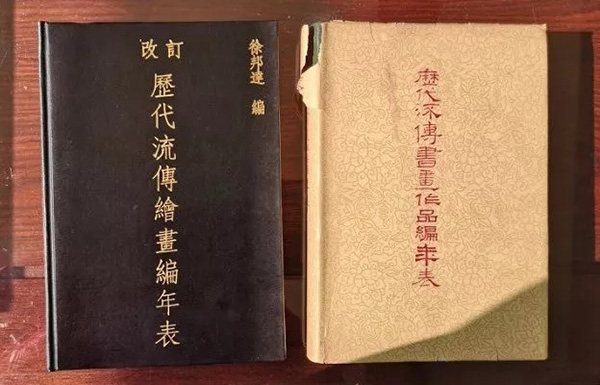 改訂
歷代流傳繪畫編年表
徐邦達 編
歷代流傳書畫作品編年表